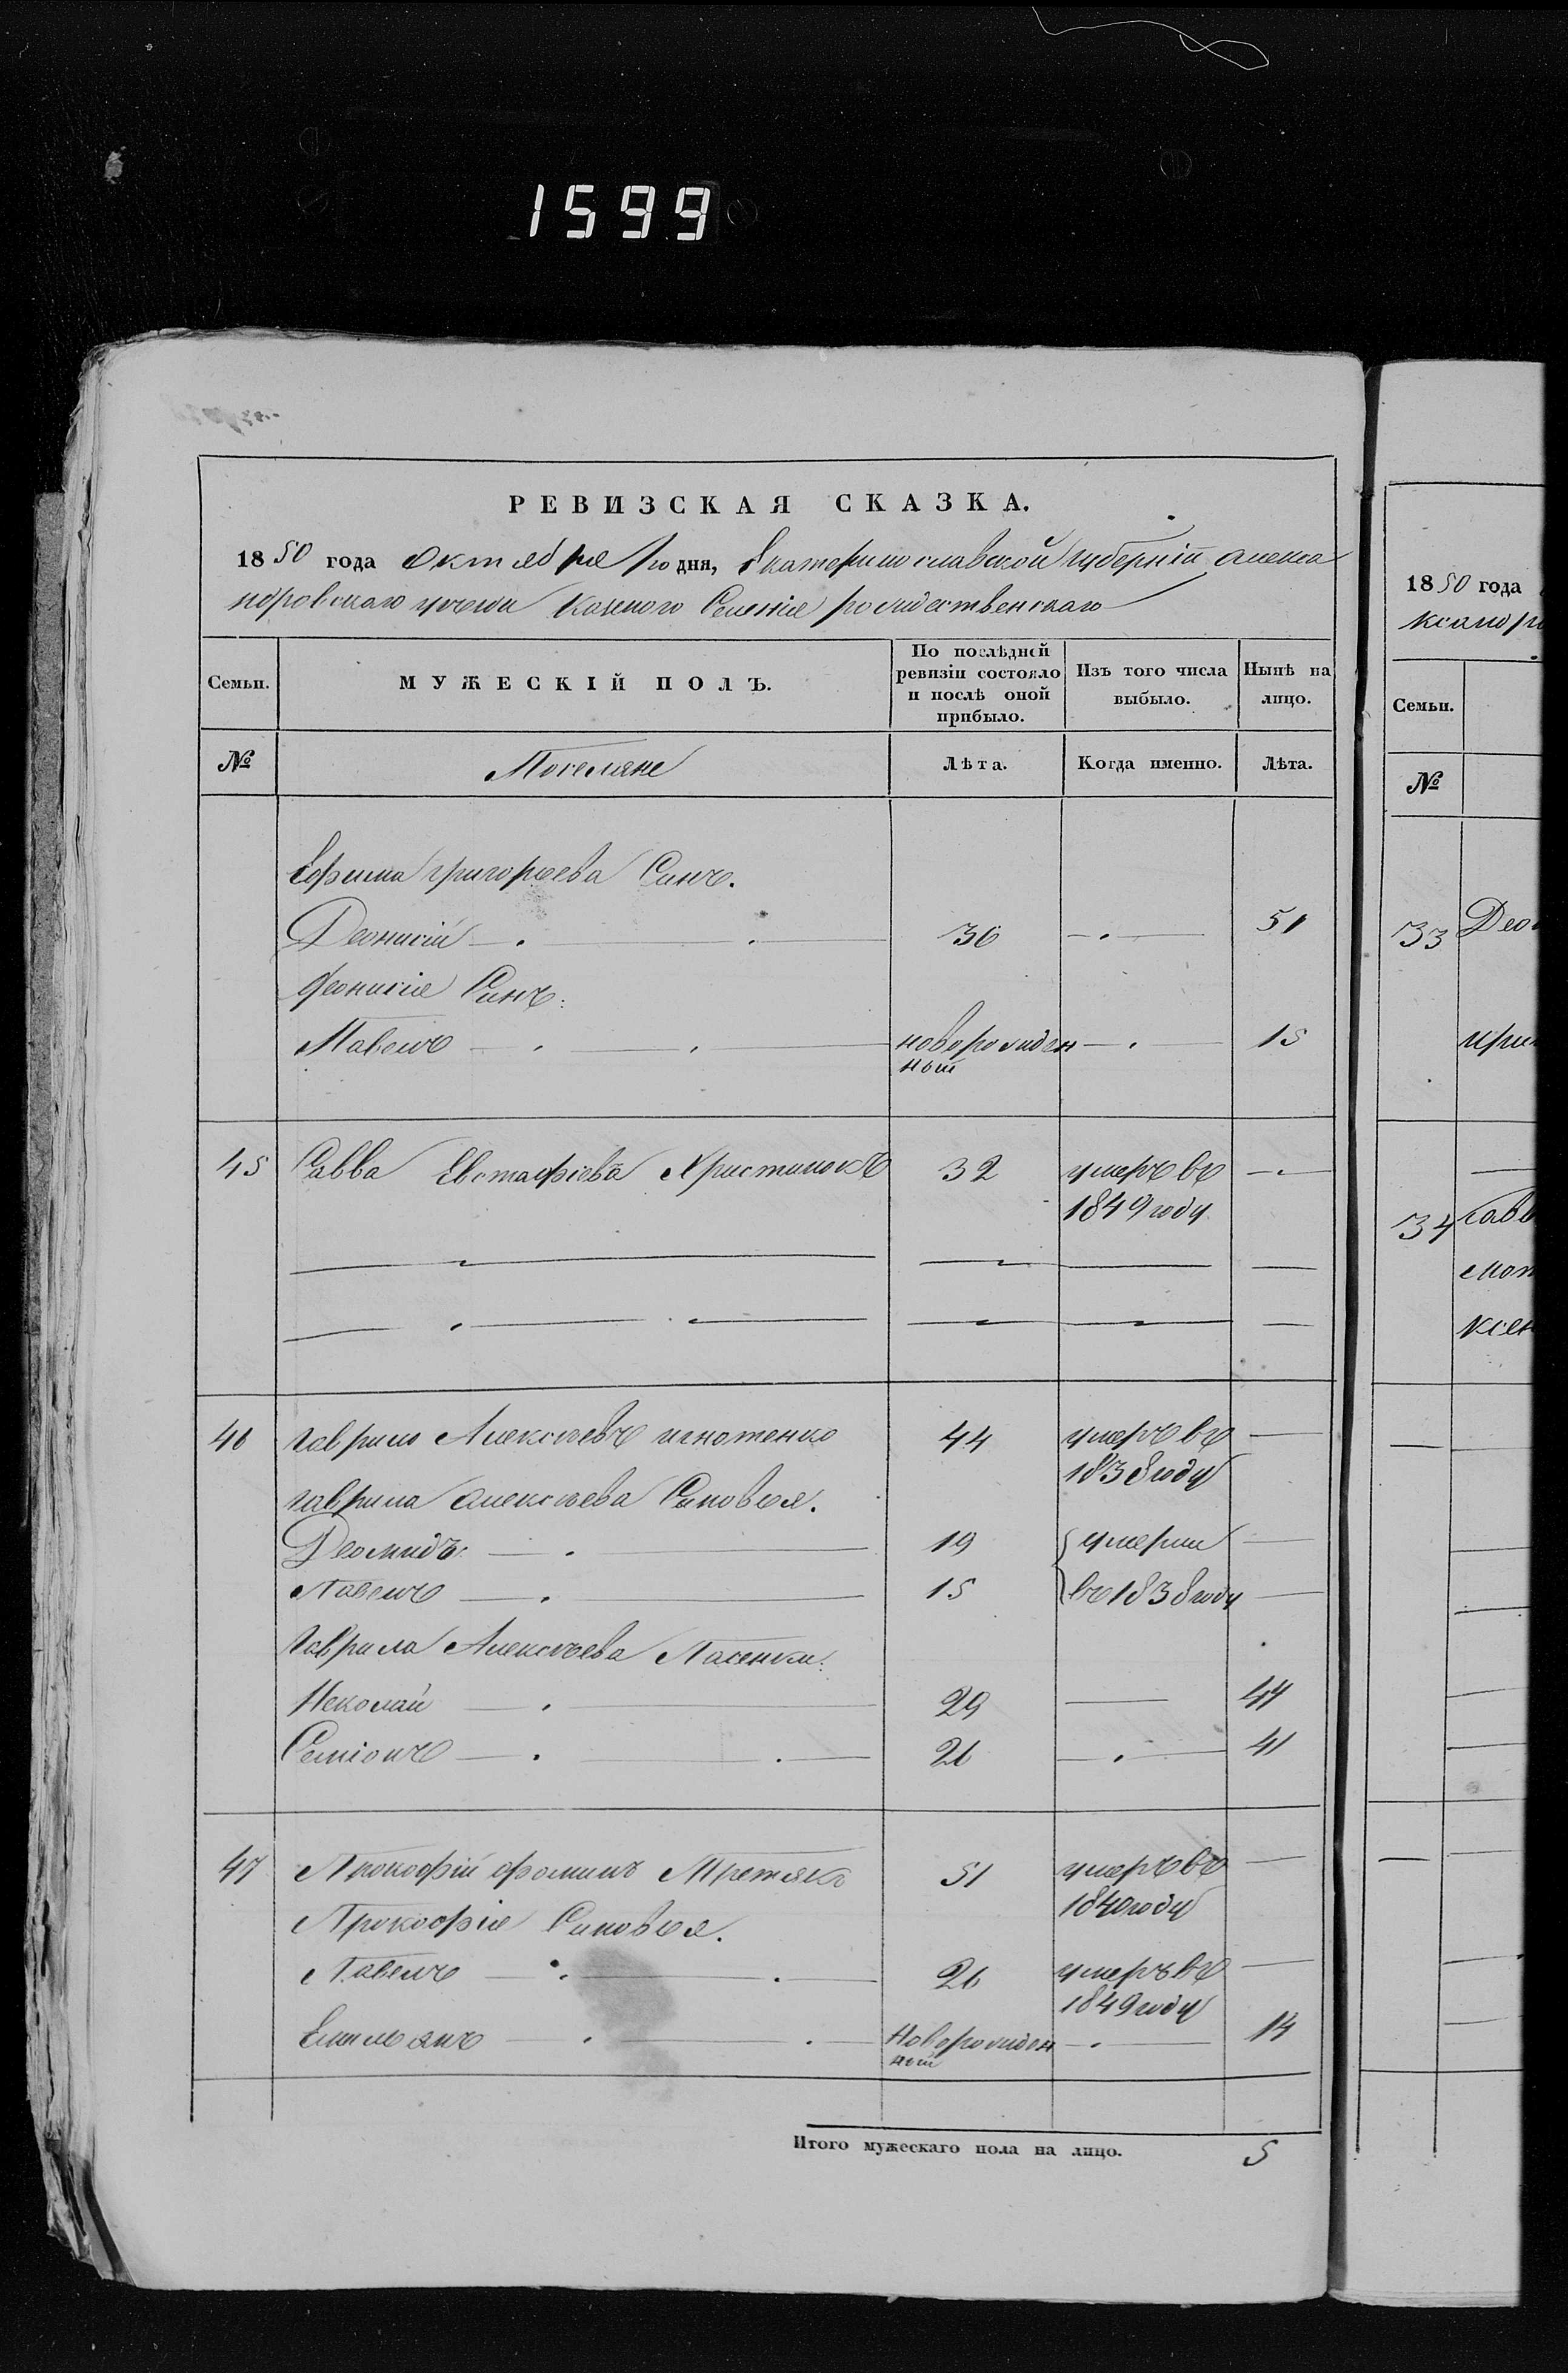 1599
РЕВИЗСКАЯ СКАЗКА.
1850 года Октября 1го дня, Екатеринославской губерніи алекса
ндровскаго уезда Казеного Селенія рождественскаго
Семьи. МУЖЕСКІЙ ПОЛЪ. По послѣдней ревизіи состояло и послѣ оной прибыло. Изъ того числа выбыло. Нынѣ на лицо.
№ Поселяне Лѣта. Когда именно. Лѣта.
Ефима григорьева Синъ.
Деонисій 36 51
Феонисія Синъ:
Павелъ новорожден 15
ный
45 Савва Евстафіева 32 умеръ въ
1849 году
46 гаврило Алексѣевъ игнотенко 44 умеръ въ
1838 году
гаврила алексѣева Синовья.
Деомидъ 19 умерли
Павелъ 15 въ 1838 году
Гаврила Алексѣева Пасенки:
Неколай 29 44
Семіонъ 26 41
47 Прокофій фоминъ Третякъ 51 умеръ въ
1840 году
Прокофія Синовья.
Павелъ 26 умеръ въ
1849 году
Емельянъ Новорожден 14
ный
Итого мужескаго пола на лицо. 5
1850 года
ксандро
Семьи.
№
33 Део
34
ксен